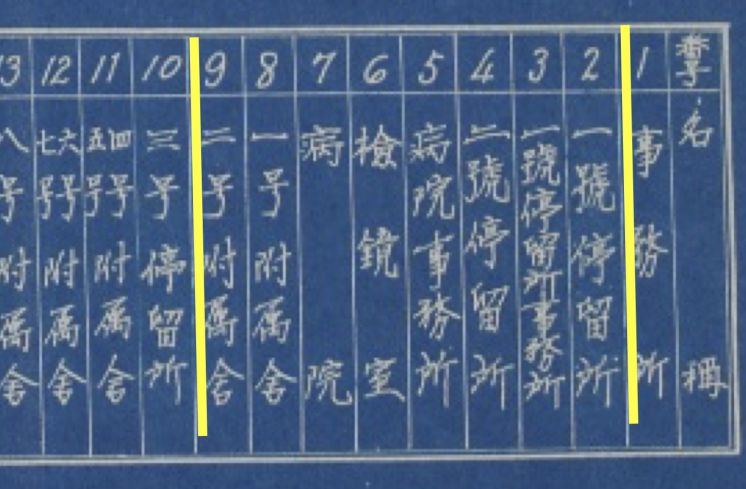 番号 名稱
1 事務所
2 一號停留所
3 一號停留所事務所
4 二號停留所
5 病院事務所
6 檢鏡室
7 病院
8 一号附属舎
9 二号附属舎
10 三号停留所
11 四号五号附属舎
12 六号七号附属舎
13 八号附属舎